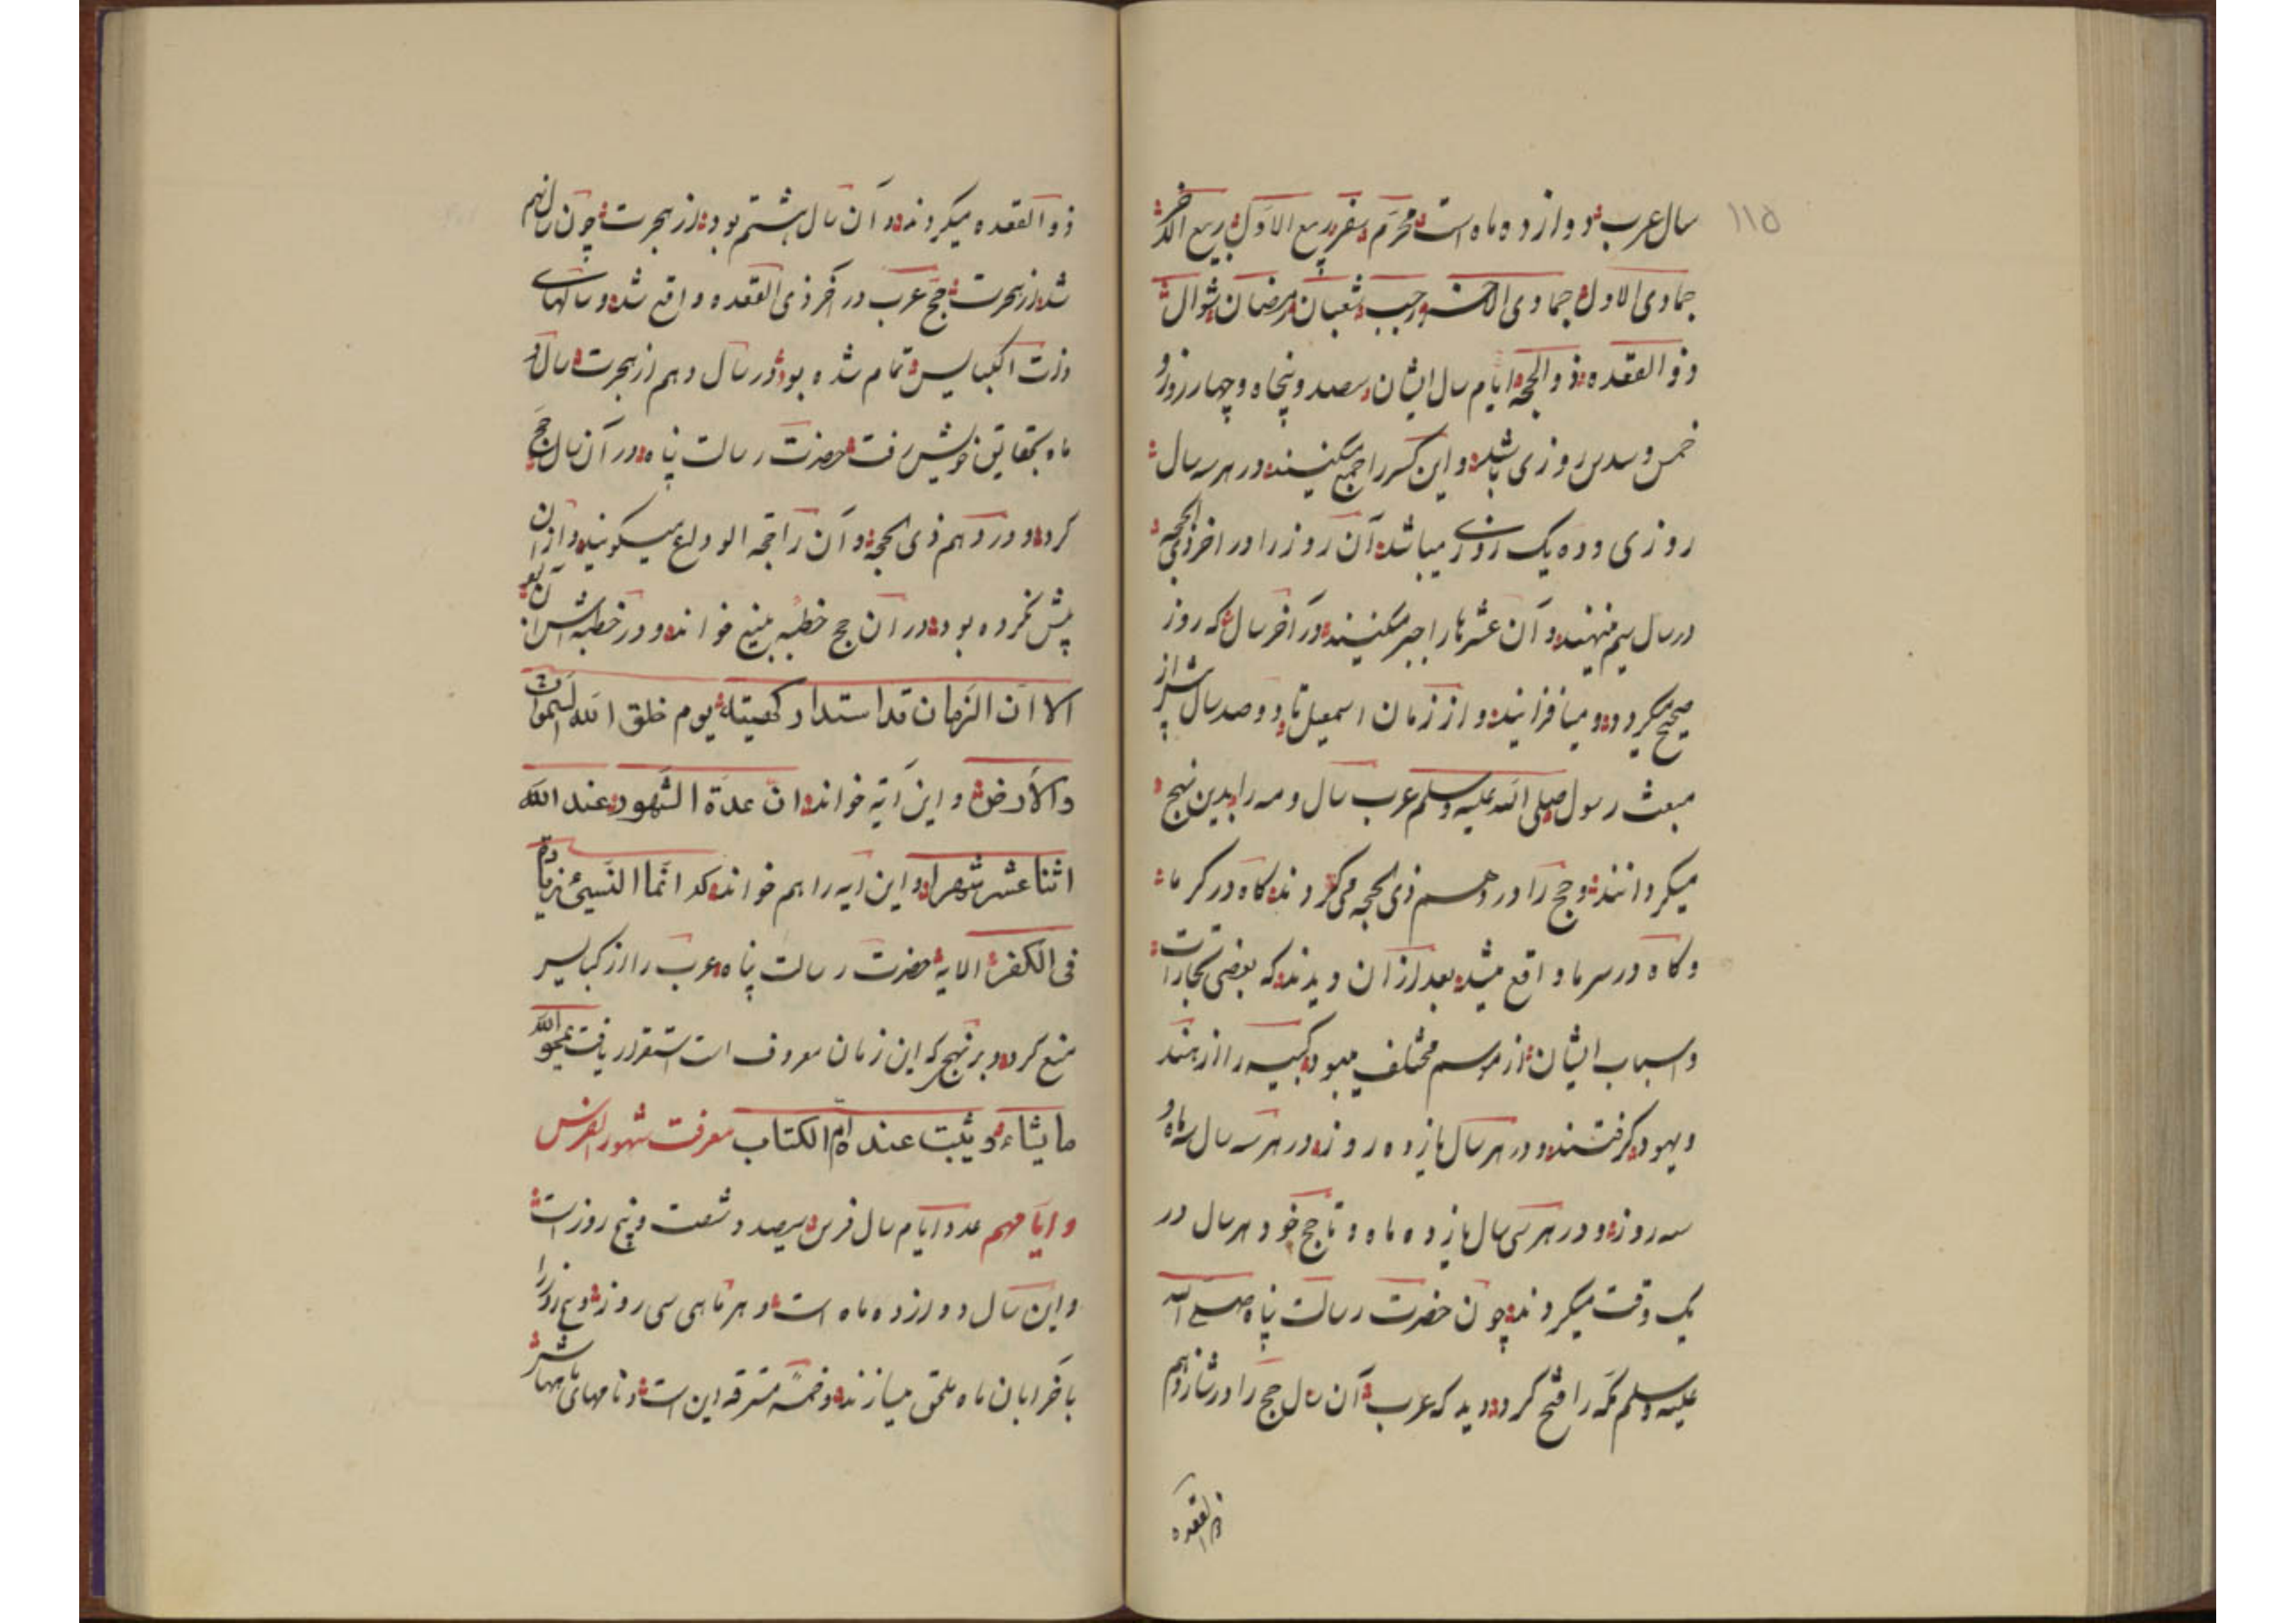 ۱۱۵
سال عرب دوازده ماه است محرم صفر ربیع الاول ربیع الاخر
جمادی الاول جمادی الاخر رجب شعبان رمضان شوال
ذو القعده ذو الحجه ایام سال ایشان سصد و پنجاه و چهار روز و
خمس و سدس روزی باشد و این کسر را جمع میکنند در هر سه سال
روزی و ده یک روزی میباشد آن روز را در اخر ذی الحجه
در سال سیم منهند و آن عشرها را جبر میکنند در آخر سال که روز
صحیح میکردد و میافزایند و از زمان اسمعیل تا دوصد سال پیش از
مبعث رسول صلی الله علیه وسلم عرب سال و مه را بدین نهج
میکردانند و حج را در دهم ذی الحجه می کردند کاه در کرما
و کاه در سرما واقع میشد بعد از ان دیدند که بعضی تجارات
و اسباب ایشان از موسم مختلف میبود کبیسه را از هند
و یهود کرفتند و در هر سال یازده روز در هر سه سال یکماه و
سه روز و در هر سی سال یازده ماه و تا حج خود هر سال در
یک وقت میکردند چون حضرت رسالت پناه صلی الله
علیه وسلم مکه را فتح کرد دید که عرب آن سال حج را در شانزدهم
ذو القعده
ذو القعده میکردند و آن سال هشتم بود از هجرت چون سال نهم
شد از هجرت حج عرب در آخر ذی القعده واقع شد و سالهای
کبایس تمام شده بود در سال دهم از هجرت سال و
ماه بحقایق خویش رفت حضرت رسالت پناه در آن سال حج
کرد و در دهم ذی الحجه و آن را حجه الوداع میکویند و از ان
پیش نکرده بود در آن حج خطبه بلیغ خواند و در خطبه اش این بود
الا ان الزمان قد استدار کهیئته یوم خلق الله السموات
والارض و این آیه خواند ان عدة الشهور عند الله
اثنا عشر شهرا و این ایه را هم خواند که انما النسیئ زیادة
فی الکفر الایه حضرت رسالت پناه عرب را از کبایس
منع کرد و بر نهجی که این زمان معروف است استقرار یافت یمحو الله
ما یشاء و یثبت عند ام الکتاب معرفت شهور الفرس
و ایامهم عدد ایام سال فرس سیصد و شصت و پنج روز است
و این سال دوازده ماه است و هر ماهی سی روز و پنج روز را
باخر ابان ماه ملحق میسازند و خمسه مسترقه این است و نامهای ماههاش